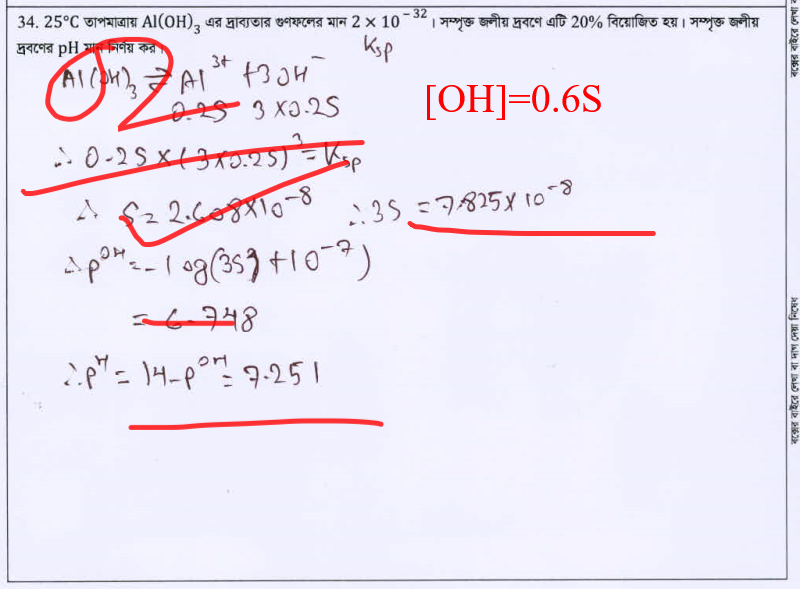 34. 25°C তাপমাত্রায় Al(OH)₃ এর দ্রাব্যতার গুণফলের মান 2 × 10⁻³²। সম্পৃক্ত জলীয় দ্রবণে এটি 20% বিয়োজিত হয়। সম্পৃক্ত জলীয়
দ্রবণের pH মান নির্ণয় কর।
Ksp
Al(OH)₃ ⇌ Al³⁺ + 3OH⁻
0.2S 3×0.2S
[OH]=0.6S
∴ 0.2S × (3×0.2S)³ = Ksp
∴ S = 2.608×10⁻⁸ ∴ 3S = 7.825×10⁻⁸
∴ pOH = -log(3S) + 10⁻⁷)
= 6.748
∴ pH = 14-pOH = 7.251
বক্সের বাইরে লেখা বা দাগ দেয়া নিষেধ